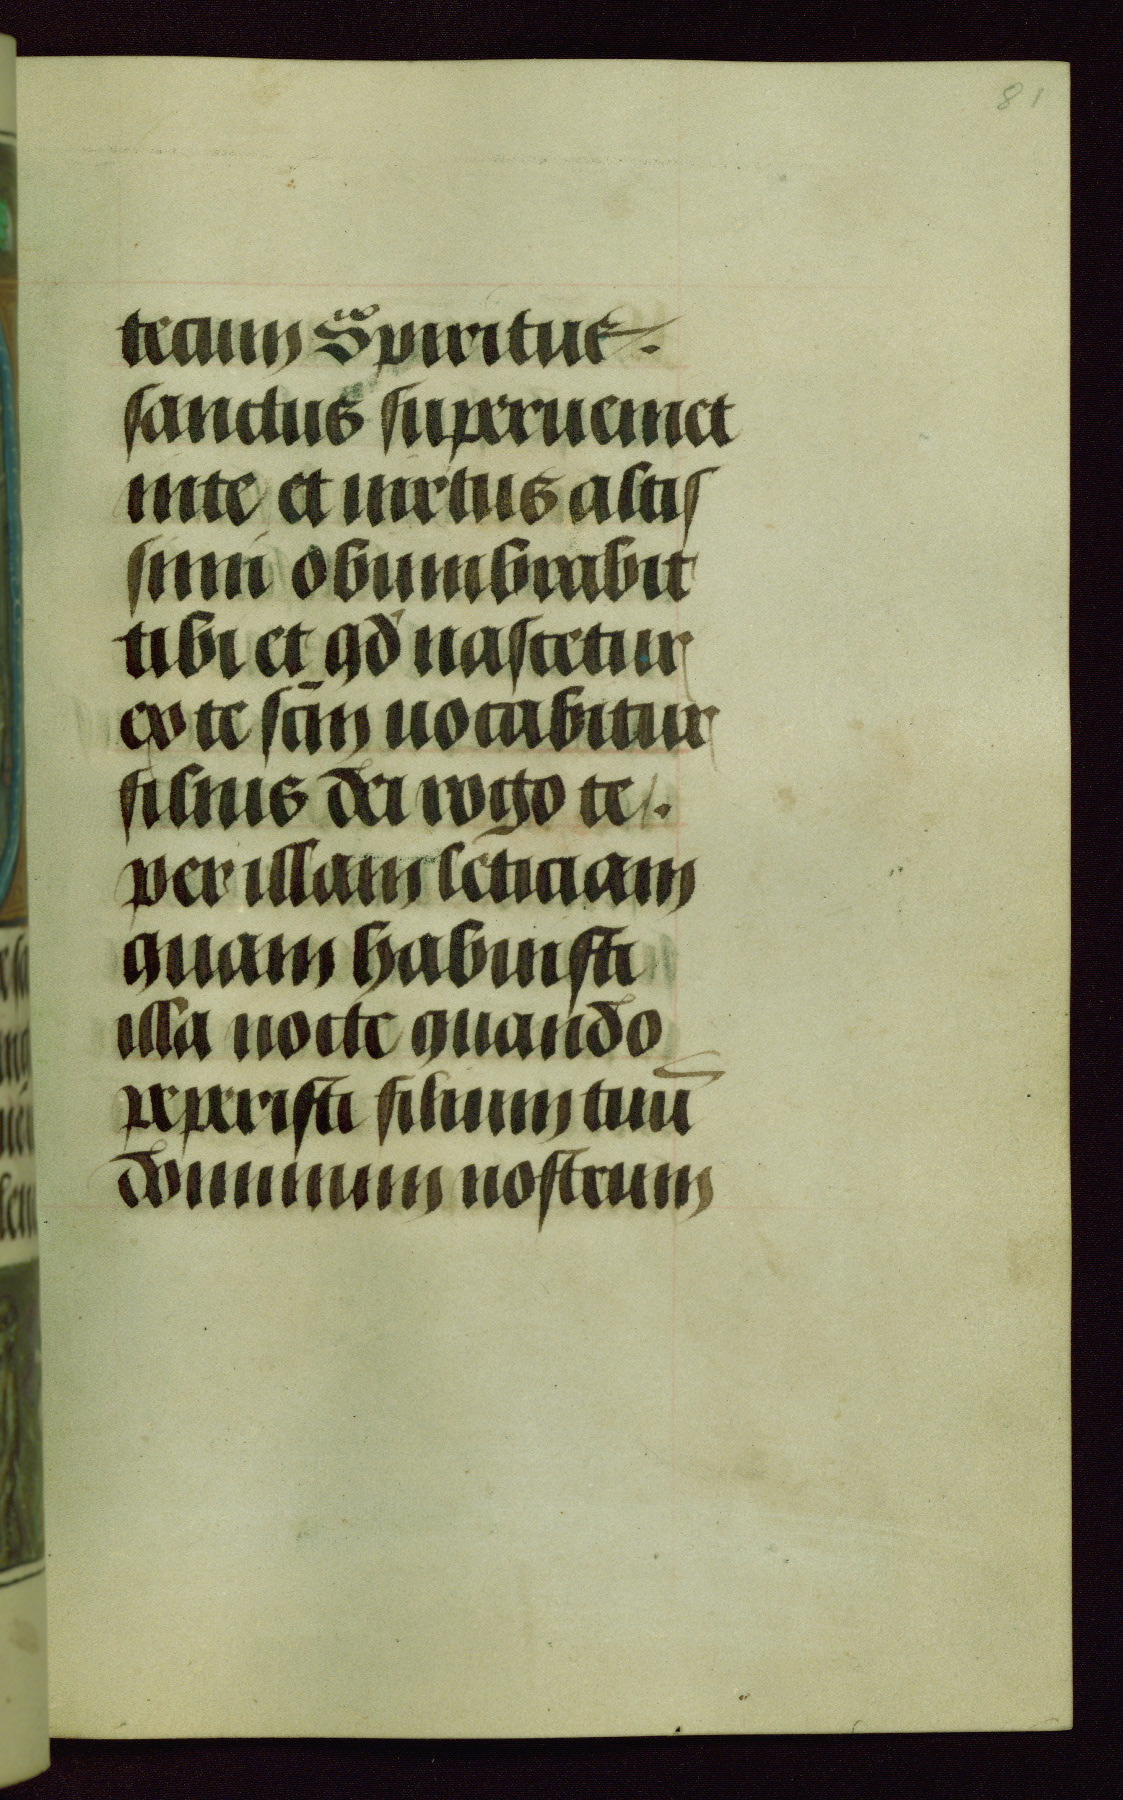 81
tecum Spiritus.
sanctus superueniet
inte et uirtus altis
simi obumbrabit
tibi et qd nascetur
ex te scm̄ uocabitur
filius dei rogo te.
per illam leticiam
quam habuisti
illa nocte quando
peperisti filium tuū
dominum nostrum